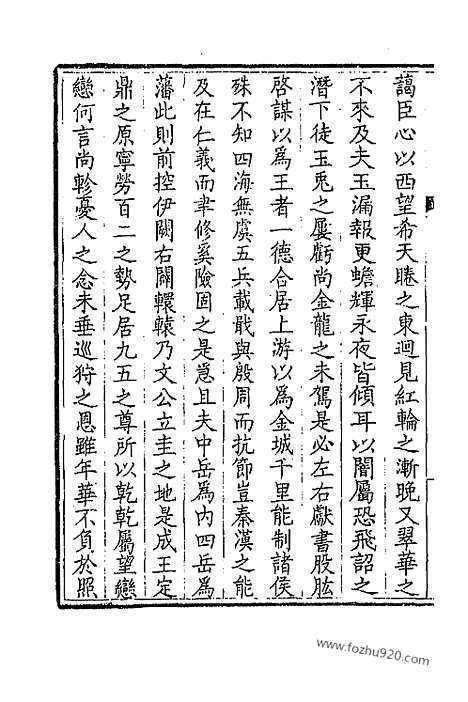 藹臣心以西望希天睠之東迴見紅輪之漸晚又翠華之
不來及夫玉漏報更蟾輝永夜皆傾耳以闇屬恐飛詔之
潛下徒玉兎之屢虧尚金龍之未駕是必左右獻書股肱
啓謀以爲王者一德合居上游以爲金城千里能制諸侯
殊不知四海無虞五兵載戢與殷周而抗節豈秦漢之能
及在仁義而聿修奚險固之是急且夫中岳爲内四岳爲
藩此則前控伊闕右關轘轅乃文公立圭之地是成王定
鼎之原寧勞百二之勢足居九五之尊所以乾乾屬望戀
戀何言尚軫憂人之念未垂巡狩之恩雖年華不負於照
www.fozhu920.com